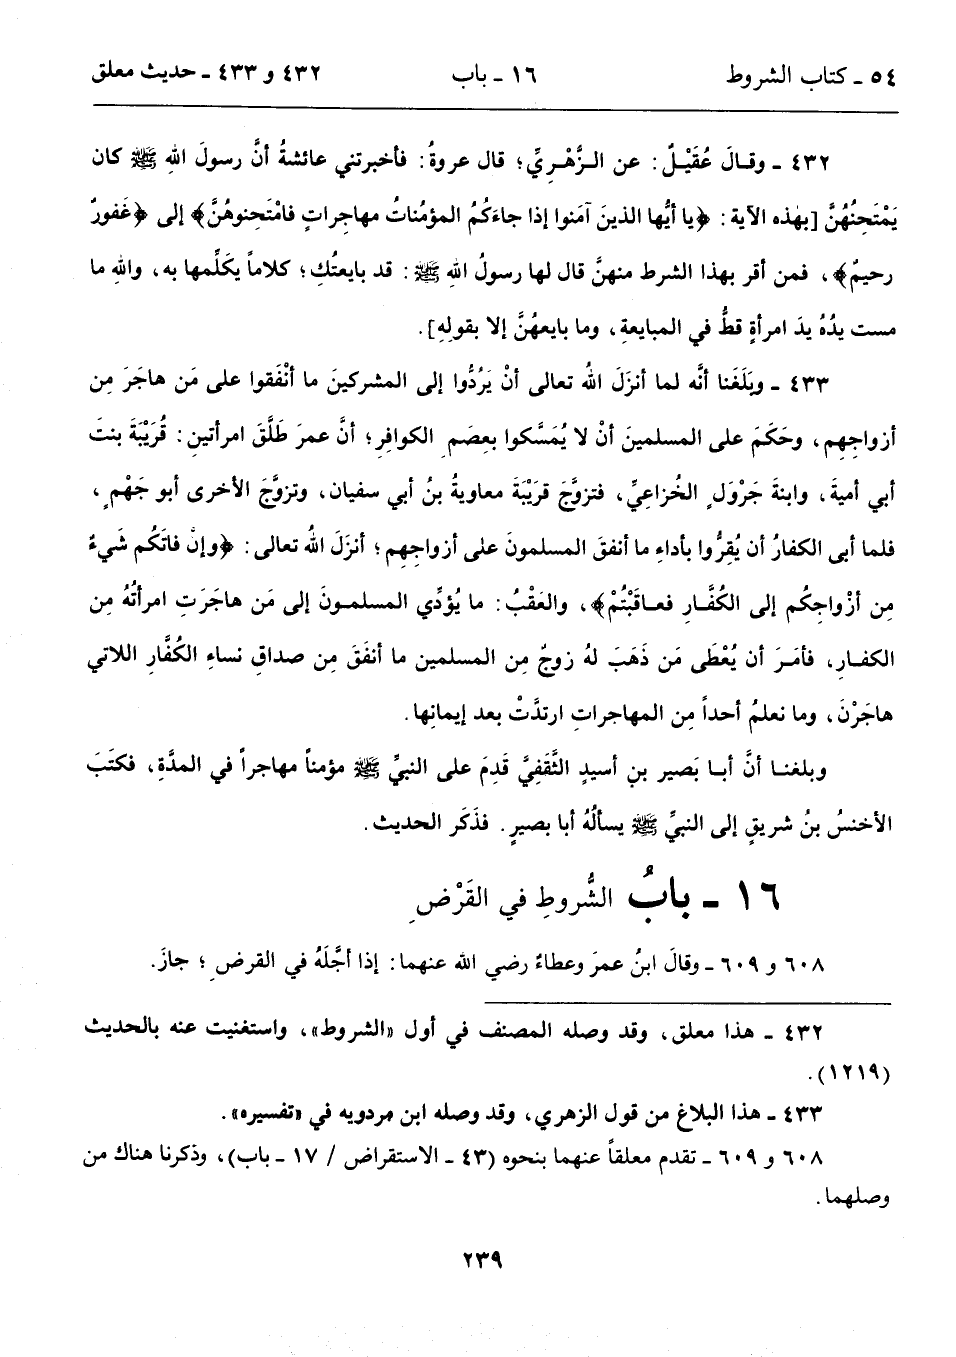 ٥٤ ـ كتاب الشروط ١٦ ـ باب ٤٣٢ و ٤٣٣ ـ حديث معلق
٤٣٢ ـ وقالَ عُقَيْلٌ: عن الزَّهْرِيِّ؛ قال عروةُ: فأخبرتني عائشةُ أنَّ رسولَ اللهِ ﷺ كان
يَمْتَحِنُهُنَّ [بهذه الآية: ﴿يا أيُّها الذينَ آمَنوا إذا جاءَكُمُ المؤمْناتُ مهاجراتٍ فامْتَحِنوهُنَّ﴾ إلى ﴿غَفورٌ
رحيمٌ﴾، فمن أقر بهذا الشرط منهنَّ قال لها رسولُ اللهِ ﷺ: قد بايعتُكِ؛ كلاماً يكَلِّمها به، واللهِ ما
مست يدُهُ يدَ امرأةٍ قطُّ في المبايعةِ، وما بايعهُنَّ إلا بقولِهِ].
٤٣٣ ـ وبَلَغَنا أنَّه لما أنزَلَ اللهُ تعالى أنْ يَرُدُّوا إلى المشركينَ ما أنْفَقوا على مَن هاجَرَ مِن
أزواجِهِم، وحَكَمَ على المسلمينَ أنْ لا يُمَسَّكوا بعِصَمِ الكوافِرِ؛ أنَّ عمرَ طَلَّقَ امرأتين: قُرَيْبَةَ بنتَ
أبي أميةَ، وابنةَ جَرْوَلٍ الخُزاعِيِّ، فتزوَّجَ قريْبَةَ معاويةُ بنُ أبي سفيان، وتزوَّجَ الأخرى أبو جَهْمٍ،
فلما أبى الكفارُ أن يُقِرُّوا بأداءِ ما أنفقَ المسلمونَ على أزواجِهِم؛ أنزَلَ اللهُ تعالى: ﴿وإنْ فاتَكُم شَيءٌ
مِن أزْواجِكُم إلى الكُفَّارِ فعاقَبْتُمْ﴾، والعَقْبُ: ما يُؤدِّي المسلمونَ إلى مَن هاجَرَتِ امرأتُهُ مِن
الكفارِ، فأمَرَ أن يُعْطَى مَن ذَهَبَ لهُ زوجٌ مِن المسلمين ما أنفَقَ مِن صداقِ نساءِ الكُفَّارِ اللاتي
هاجَرْنَ، وما نعلمُ أحداً مِن المهاجراتِ ارتدَّتْ بعد إيمانِها.
وبلغنا أنَّ أبا بَصيرِ بنِ أسيدٍ الثَّقَفِيَّ قَدِمَ على النبيِّ ﷺ مؤمناً مهاجراً في المدَّةِ، فكتَبَ
الأخنسُ بنُ شريقٍ إلى النبيِّ ﷺ يسألُهُ أبا بصيرٍ. فذَكَر الحديث.
١٦ ـ بابُ الشُّروطِ في القَرْضِ
٦٠٨ و ٦٠٩ ـ وقالَ ابنُ عمرَ وعطاءٌ رضي الله عنهما: إذا أجَّلَهُ في القرضِ؛ جازَ.
٤٣٢ ـ هذا معلق، وقد وصله المصنف في أول «الشروط»، واستغنيت عنه بالحديث
(١٢١٩).
٤٣٣ ـ هذا البلاغ من قول الزهري، وقد وصله ابن مردويه في «تفسيره».
٦٠٨ و ٦٠٩ ـ تقدم معلقاً عنهما بنحوه (٤٣ ـ الاستقراض / ١٧ ـ باب)، وذكرنا هناك من
وصلهما.
٢٣٩